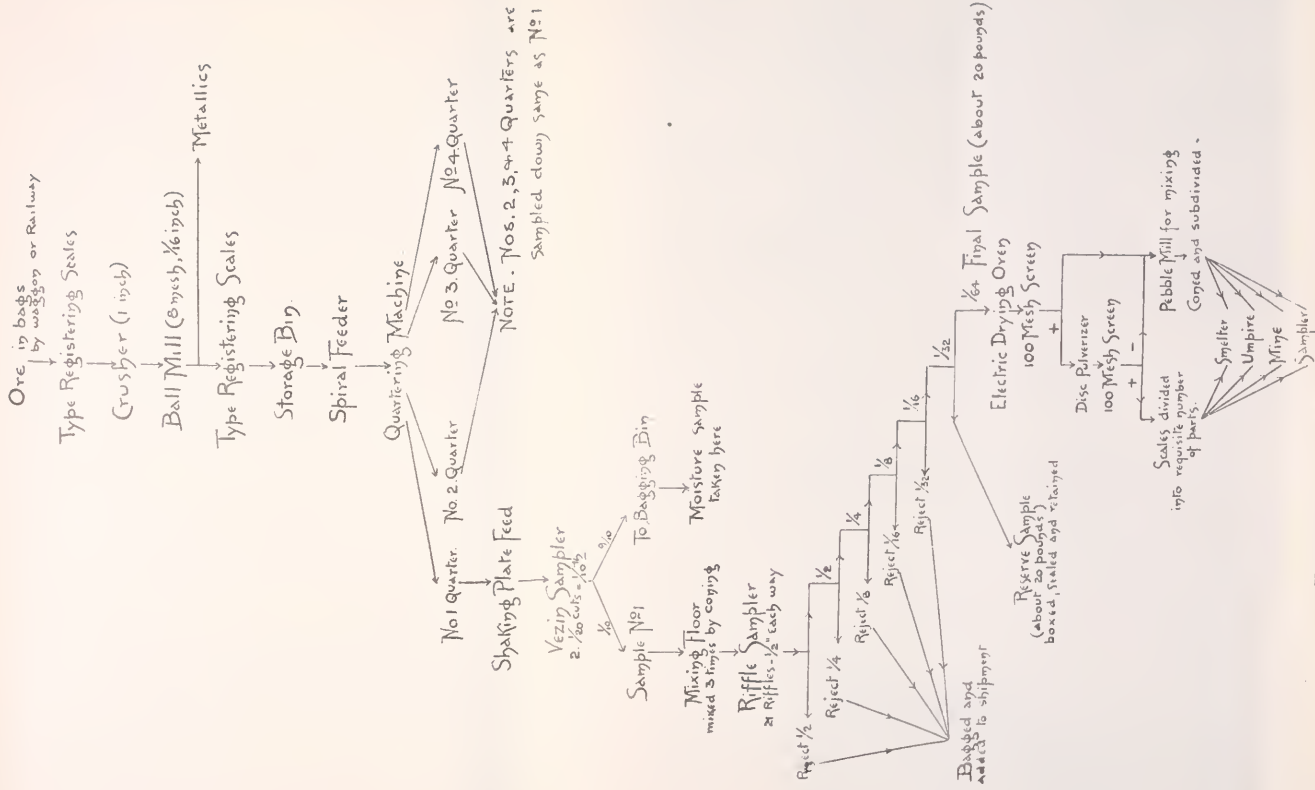 Ore in bags
by waggon or Railway
Type Registering Scales
Crusher (1 inch)
Ball Mill (8 mesh, 1/16 inch)
Metallics
Type Registering Scales
Storage Bin
Spiral Feeder
Quartering Machine
No 1 Quarter.
No. 2. Quarter
No 3. Quarter
No 4. Quarter
NOTE. Nos. 2, 3, & 4 Quarters are
sampled down same as No 1
Shaking Plate Feed
Vezin Sampler
2. 1/20 cuts = 1/10th
1/10
9/10
Sample No 1
To Bagging Bin
Moisture sample
taken here
Mixing Floor
mixed 3 times by coning
Riffle Sampler
21 Riffles - 1/2" Each way
Reject 1/2
1/2
Reject 1/4
1/4
Reject 1/8
1/8
Reject 1/16
1/16
Reject 1/32
1/32
Bagged and
added to shipment
1/64 Final Sample (about 20 pounds)
Reserve Sample
(about 20 pounds)
boxed, sealed and retained
Electric Drying Oven
100 Mesh Screen
+
Disc Pulverizer
100 Mesh Screen
+ -
Scales divided
into requisite number
of parts.
Pebble Mill for mixing
Coned and subdivided.
Smelter
Umpire
Mine
Sampler